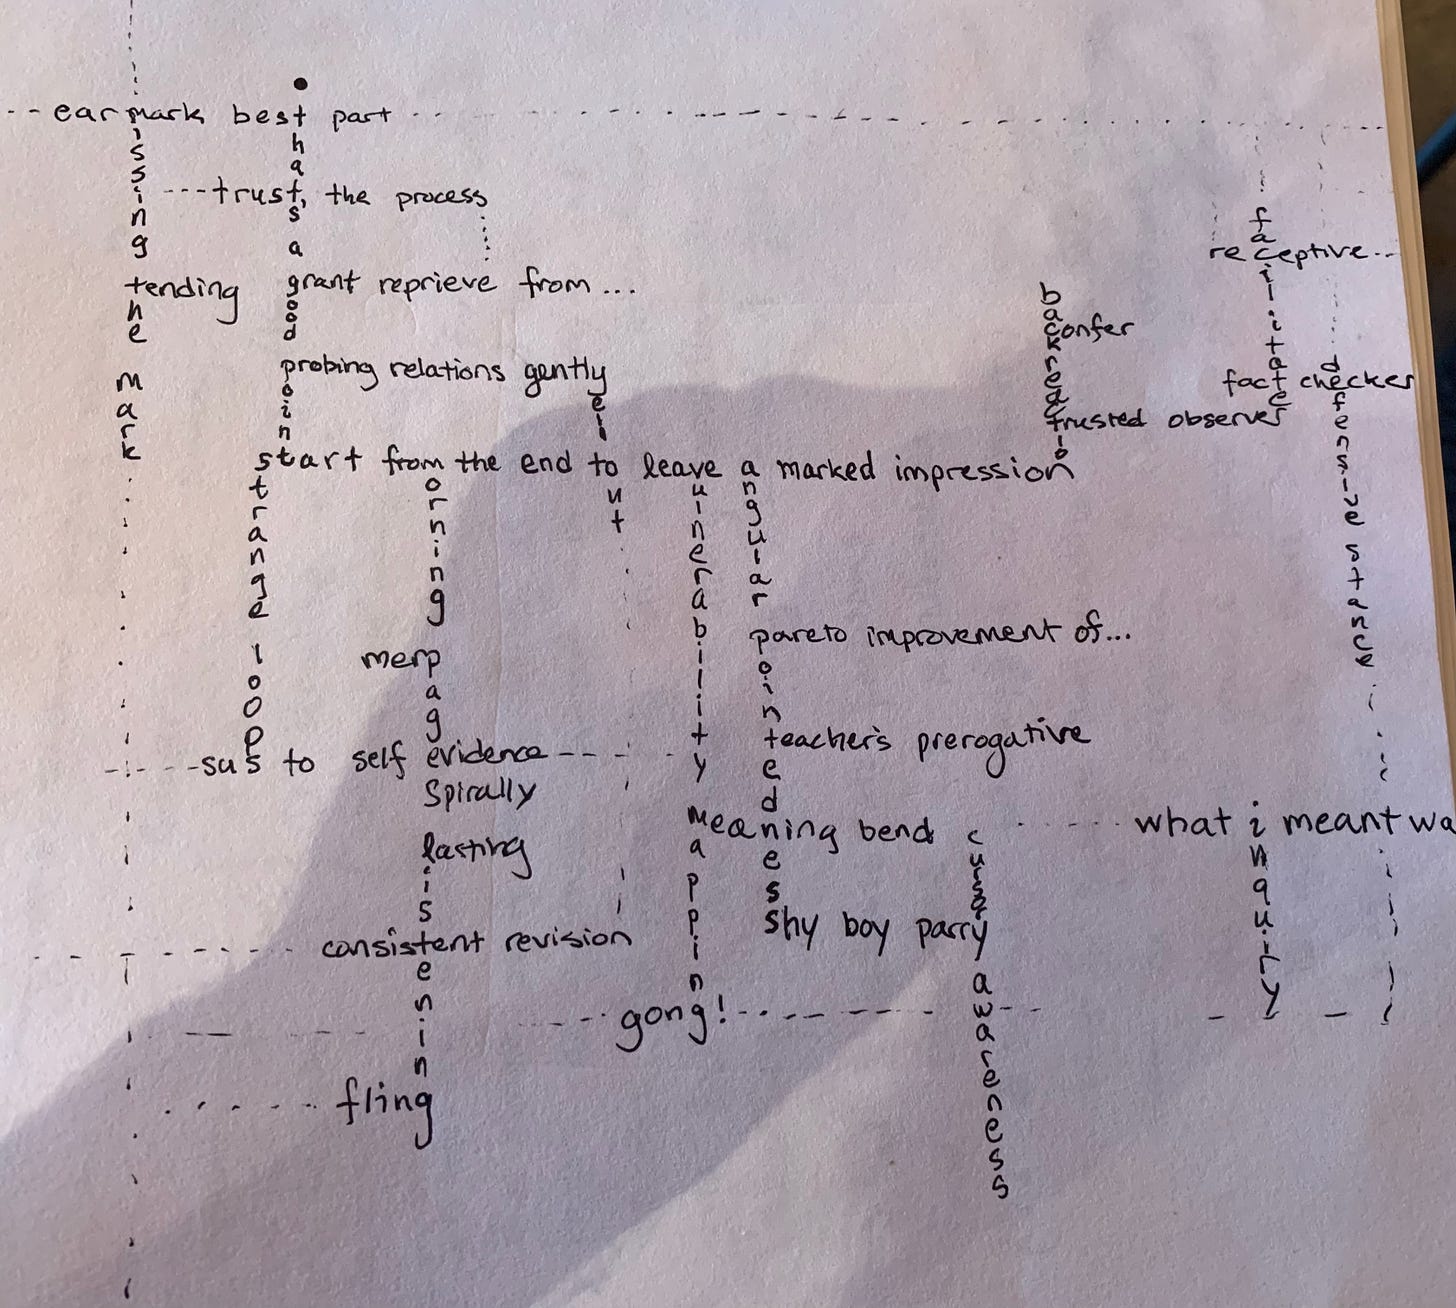 earmark best part
missing the mark
that's a good point
trust, the process
facilitater
receptive...
tending
grant reprieve from...
backreaction
confer
probing relations gently
yell out
fact checker
defensive stance
trusted observer
start from the end to leave a marked impression
strange loops
morning pages listening
vulnerability mapping
angular pointedness
pareto improvement of...
merp
teacher's prerogative
sus to self evidence
spirally
meaning bend
what i meant wa
cursory awareness
inquiry
lasting
shy boy parry
consistent revision
gong!
fling